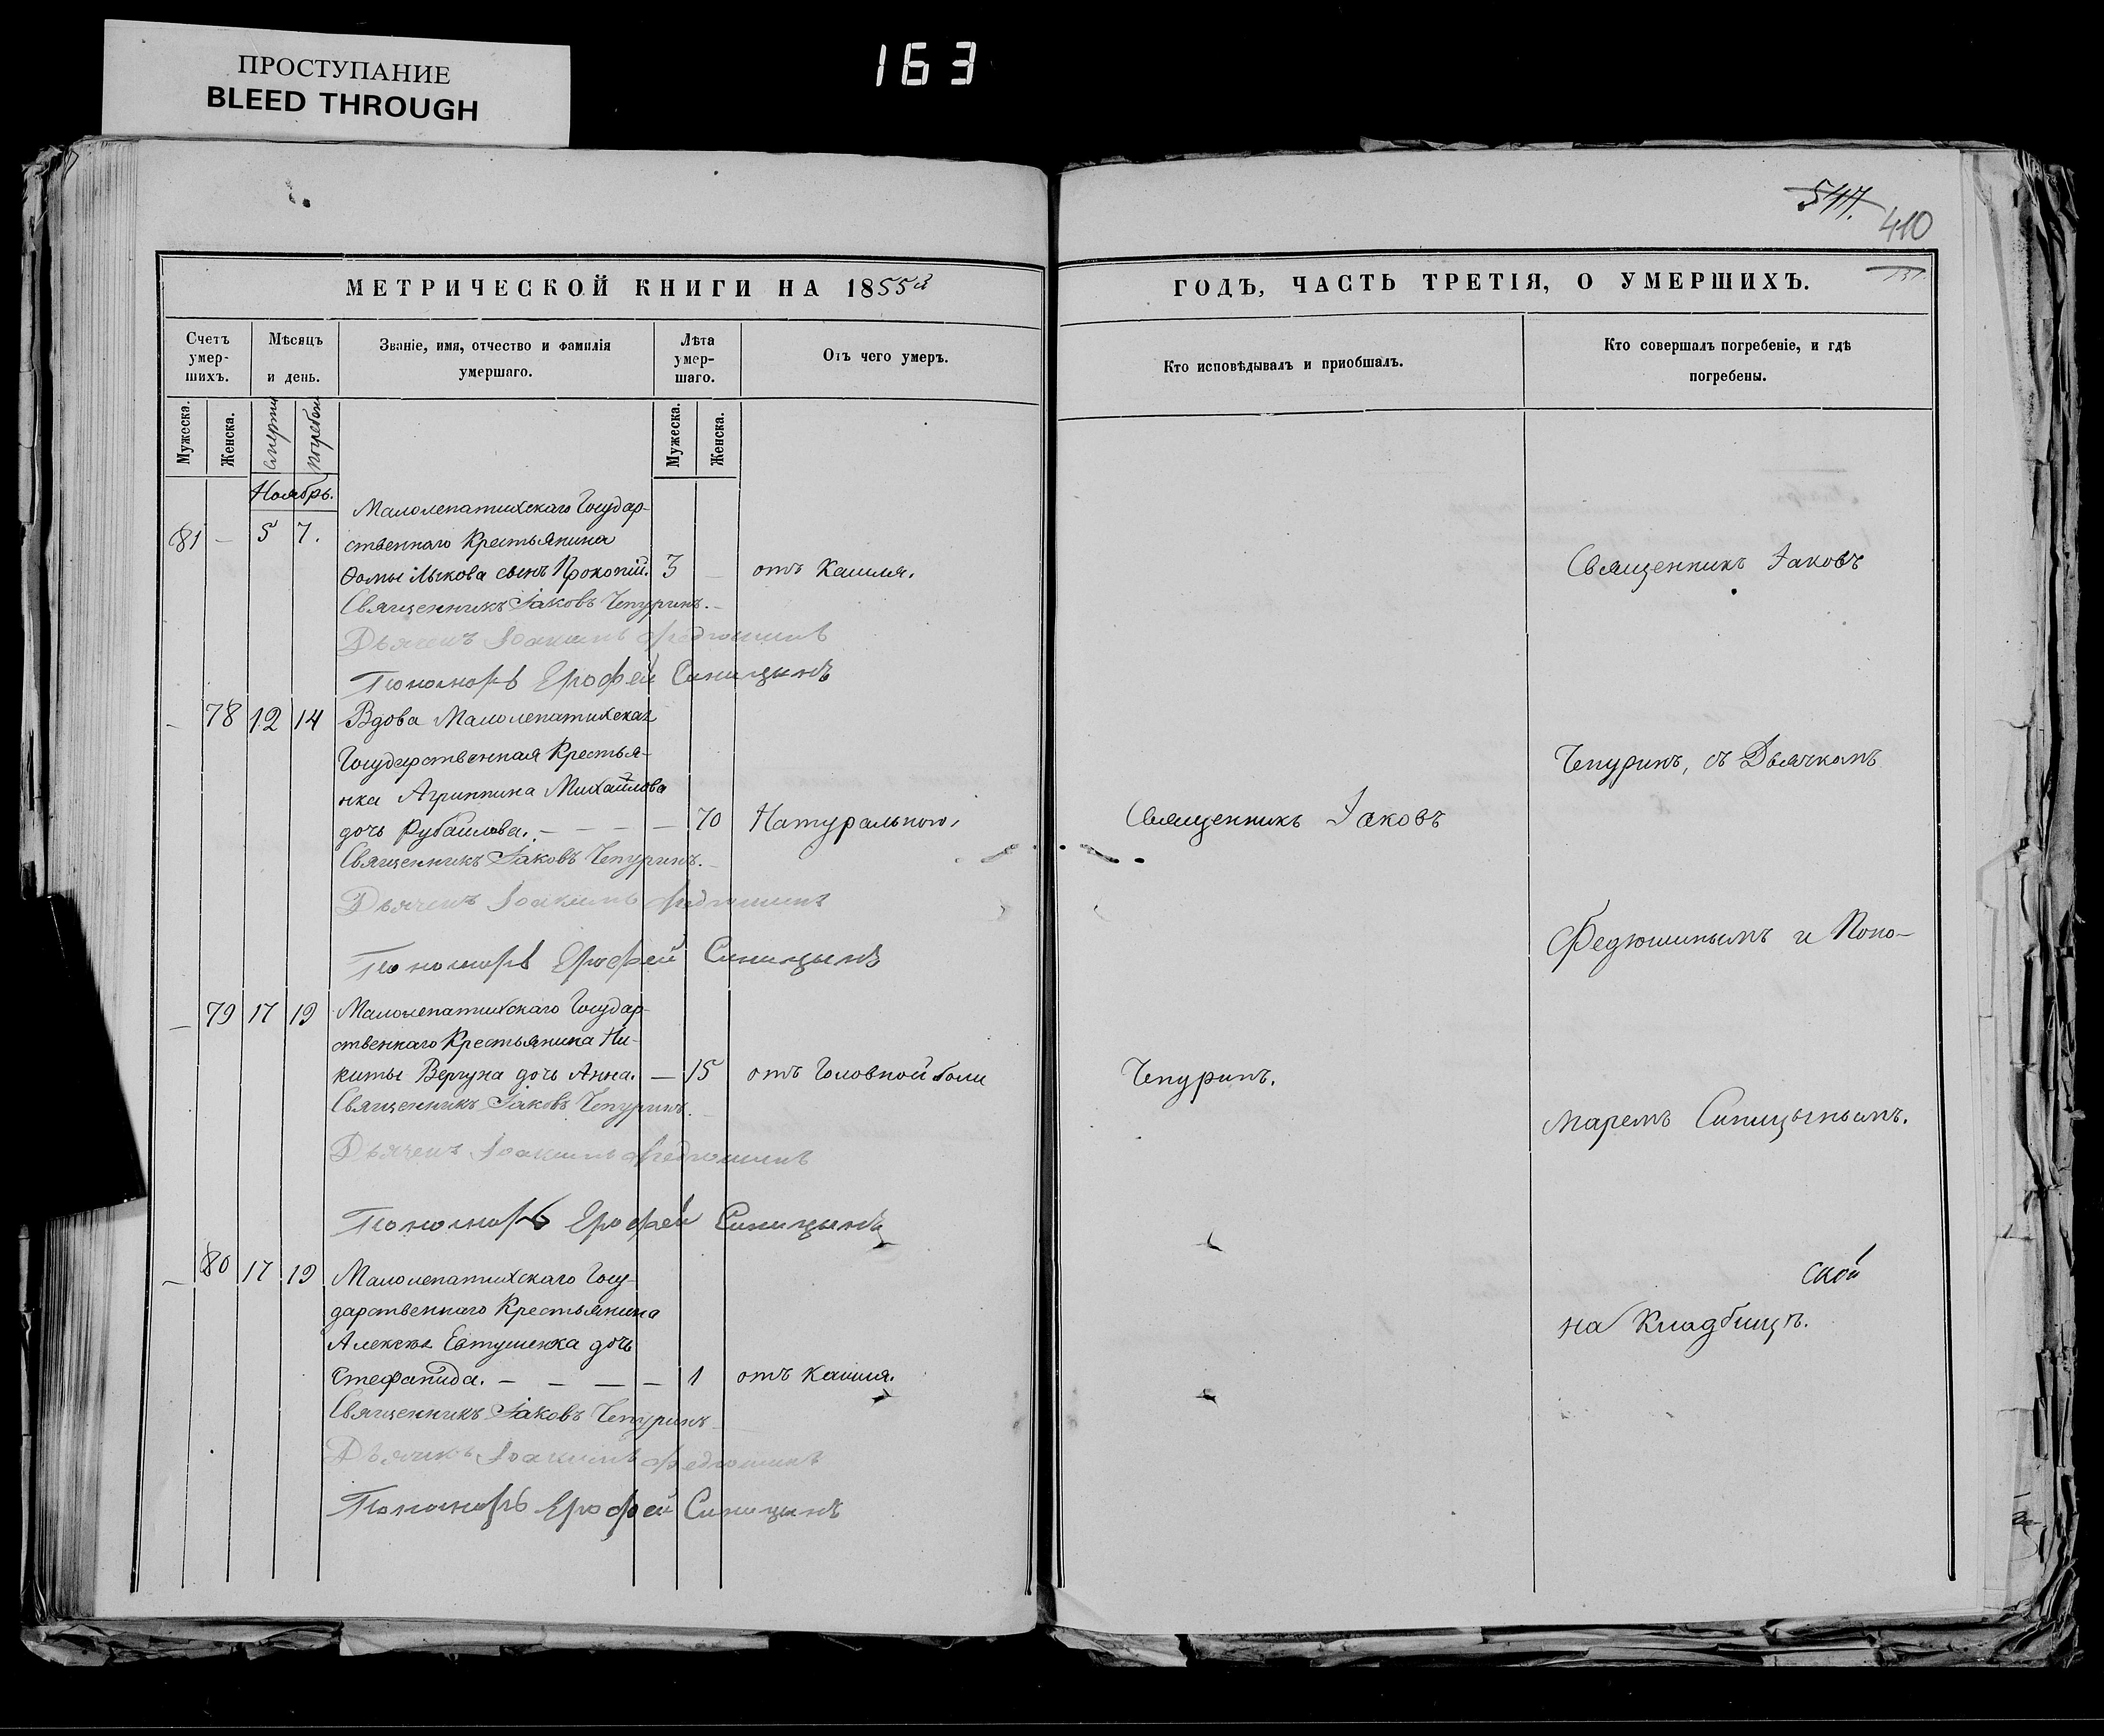 ПРОСТУПАНИЕ
BLEED THROUGH
163
547.
410
МЕТРИЧЕСКОЙ КНИГИ НА 1855й
Счетъ умер-шихъ.
Мѣсяцъ и день.
Званіе, имя, отчество и фамилія умершаго.
Лѣта умер-шаго.
Отъ чего умеръ.
Мужеска.
Женска.
смерти
погребен
Мужеска.
Женска.
Ноябрь.
Малолепатихскаго Государ-
81 — 5 7. ственнаго Крестьянина
Ѳомы Лыкова сынъ Прокопій. 3 — отъ Кашля.
Священникъ Іаковъ Чепуринъ.
Дьячекъ Іоакимъ Федюшинъ
Пономарь Ерофей Синицынъ
— 78 12 14 Вдова Малолепатихская
Государственная Крестья-
нка Агриппина Михайлова
дочь Рубашова. — — — — 70 Натурально,
Священникъ Іаковъ Чепуринъ.
Дьячекъ Іоакимъ Федюшинъ
Пономарь Ерофей Синицынъ
— 79 17 19 Малолепатихскаго Государ-
ственнаго Крестьянина Ни-
киты Вергуна дочь Анна. — 15 отъ Головной боли
Священникъ Іаковъ Чепуринъ.
Дьячекъ Іоакимъ Федюшинъ
Пономарь Ерофей Синицынъ
— 80 17 19 Малолепатихскаго Госу-
дарственнаго Крестьянина
Алексѣя Евтушенка дочь
Стефанида. — — — — 1 отъ Кашля.
Священникъ Іаковъ Чепуринъ
Дьячикъ Іоакимъ Федюшинъ
Пономарь Ерофей Синицынъ
ГОДЪ, ЧАСТЬ ТРЕТІЯ, О УМЕРШИХЪ.
Кто исповѣдывалъ и пріобщалъ.
Кто совершалъ погребеніе, и гдѣ погребены.
Священникъ Іаковъ
Чепуринъ.
Священникъ Іаковъ
Чепуринъ, съ Дьячкомъ
Федюшинымъ и Поно-
маремъ Синицынымъ.
ской
на Кладбищѣ.